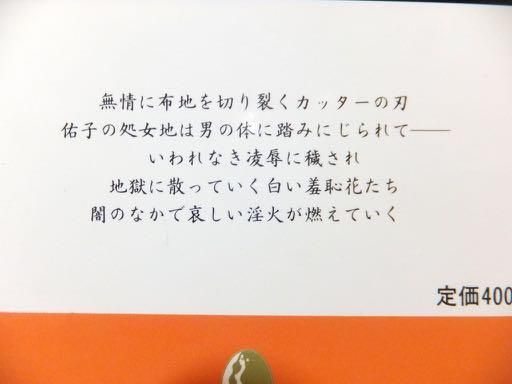 無情に布地を切り裂くカッターの刃
佑子の処女地は男の体に踏みにじられて──
いわれなき凌辱に穢され
地獄に散っていく白い羞恥花たち
闇のなかで哀しい淫火が燃えていく
定価400